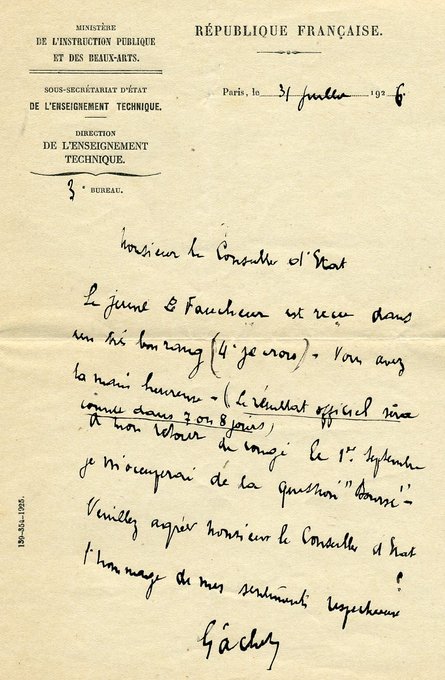 MINISTÈRE
DE L'INSTRUCTION PUBLIQUE
ET DES BEAUX-ARTS.
SOUS-SECRÉTARIAT D'ÉTAT
DE L'ENSEIGNEMENT TECHNIQUE.
DIRECTION
DE L'ENSEIGNEMENT
TECHNIQUE.
3e BUREAU.
RÉPUBLIQUE FRANÇAISE.
Paris, le 31 juillet 1926
Monsieur le Conseiller d'Etat
Le jeune Le Faucheur est reçu dans
un très bon rang (4e je crois) - Vous avez
la main heureuse - (le résultat officiel sera
connu dans 7 ou 8 jours)
A mon retour de congé le 1er septembre
je m'occuperai de la question "Bourse" -
Veuillez agréer Monsieur le Conseiller d'Etat
l'hommage de mes sentiments respectueux
Gâchet
139-354-1925.